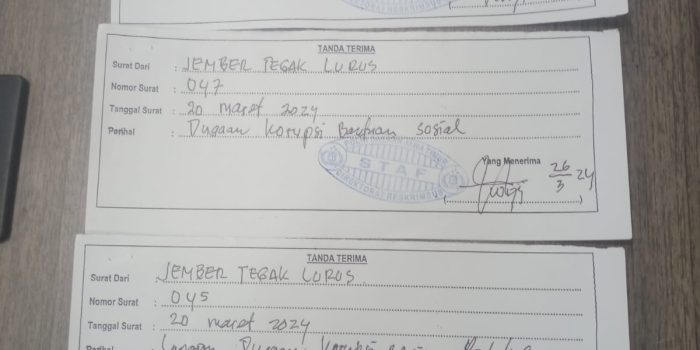 TANDA TERIMA
Surat Dari : JEMBER TEGAK LURUS
Nomor Surat : 047
Tanggal Surat : 20 maret 2024
Perihal : Dugaan Korupsi Bantuan Sosial
STAF
Yang Menerima 26/3 24
TANDA TERIMA
Surat Dari : JEMBER TEGAK LURUS
Nomor Surat : 045
Tanggal Surat : 20 maret 2024
Perihal : Laporan Dugaan Korupsi